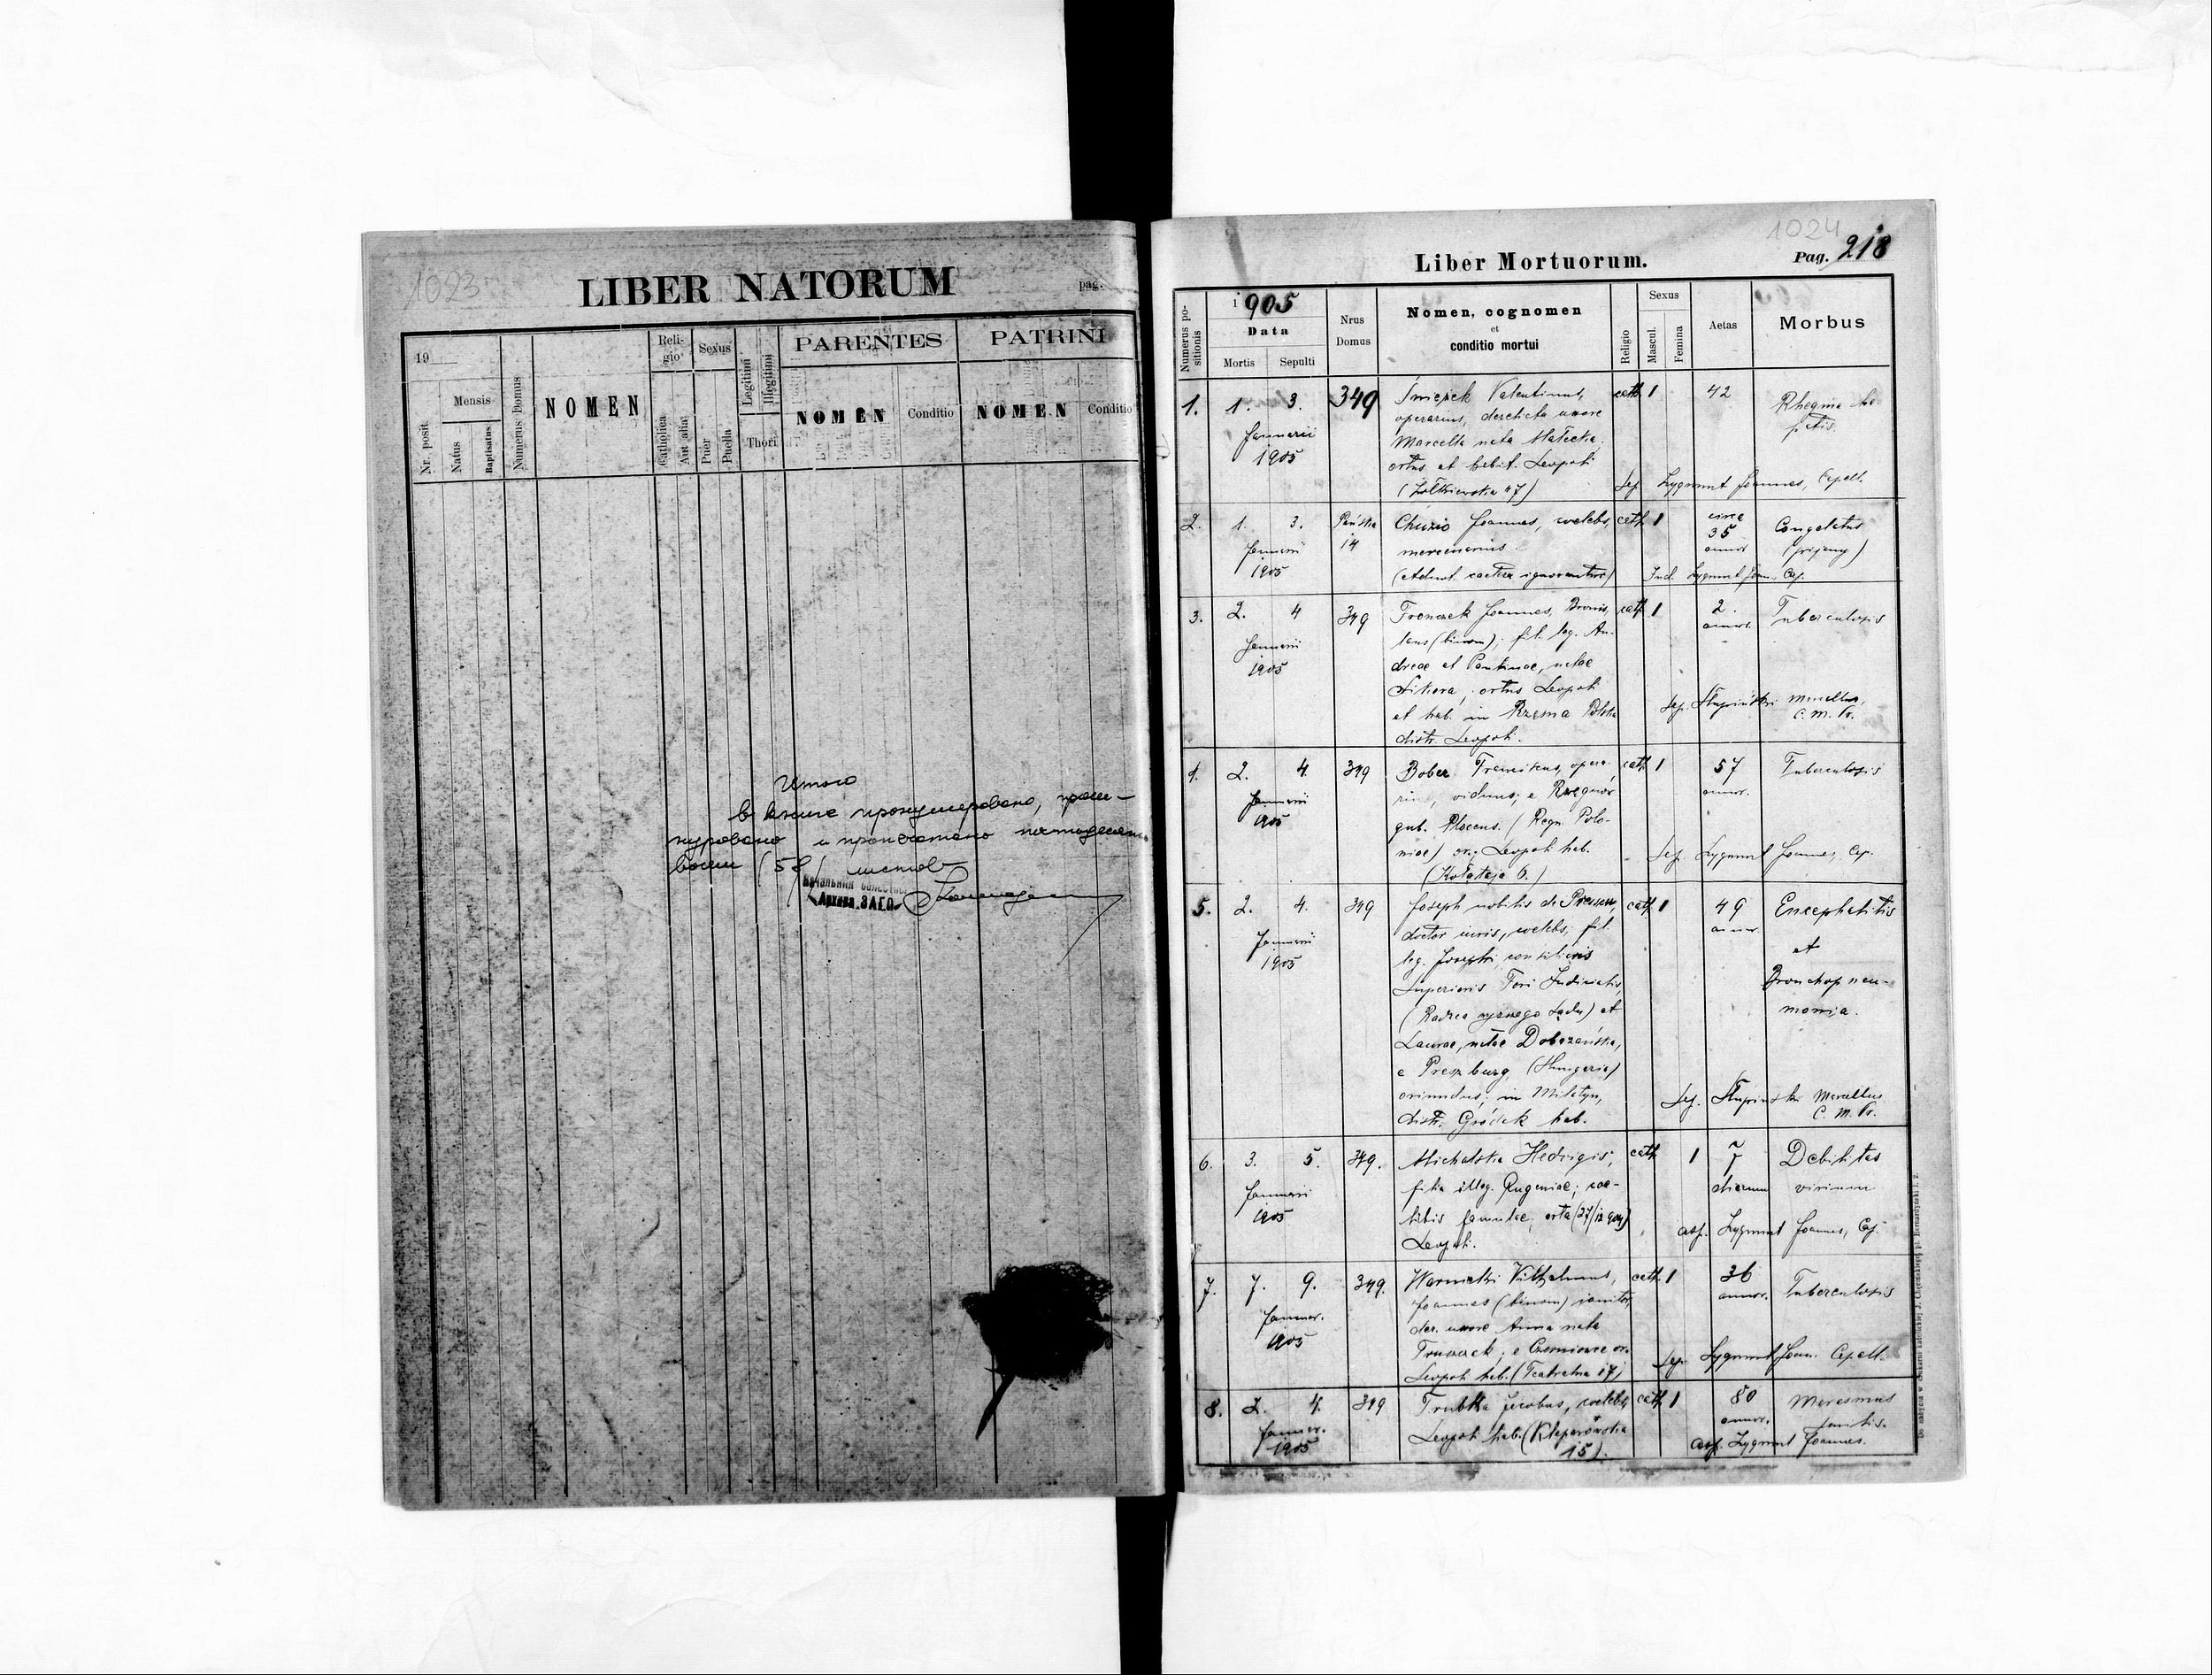 1023
LIBER NATORUM
pag.
19
Mensis
Nr. posit.
Natus
Baptisatus
Numerus Domus
NOMEN
Religio
Catholica
Aut alia
Sexus
Puer
Puella
Legitimi
Illegitimi
Thori
PARENTES
NOMEN
Conditio
PATRINI
NOMEN
Conditio
Итого
в книге пронумеровано, прош-
нуровано и пропечатано пятьдесят
восемь (58) листов
Начальник областн.
Архива ЗАГС
1024
Liber Mortuorum.
Pag. 218
Numerus positionis
1905
Data
Mortis
Sepulti
Nrus Domus
Nomen, cognomen
et
conditio mortui
Religio
Sexus
Mascul.
Femina
Aetas
Morbus
1. 1. 3. 349 Valentinus, cath. 1 42 Rhegma he-
operarius, derelicta uxore patis
Januarii Marcella nata Małecka
1905 ortus et habit. Leopoli
(Żółkiewska 47) Sep. Zygmunt Joannes, Capell.
2. 1. 3. Pańska 14 Joannes, coelebs, cath. 1 circa 35 annor. Congelatus
Januarii mercenarius
1905 (Adnot. caetera ignorantur) Ind. Zygmunt Joan., Cap.
3. 2. 4 349 Joannes, cath. 1 2. annor. Tuberculosis
laus (binom); fil. leg. An-
Januarii dreae et Paulinae, natae
1905 Sikora, ortus Leopoli
et hab. in Rzęsna Polska Sep. Słupiński Marcellus,
distr. Leopol. C. M. Pr.
4. 2. 4. 349 Bober Franciscus, opera- cath. 1 57 annor. Tuberculosis
rius, viduus; e
Januarii gub. Plocens. (Regn. Polo-
1905 niae) or., Leopoli hab. Sep. Zygmunt Joannes, Cap.
(Kołątaja 6.)
5. 2. 4. 349 Joseph nobilis de cath. 1 49 annor. Encephalitis
doctor iuris, coelebs, fil. et
Januarii leg. Josephi, consiliaris Bronchopneu-
1905 Superioris Fori Judicialis, monia.
(Radzca wyższego Sądu) et
Laurae, natae Dobrzańska,
e Preszburg, (Hungaria)
oriundus; in Milatyn, Sep. Słupiński Marcellus
distr. Gródek hab. C. M. Pr.
6. 3. 5. 349. Michalska Hedvigis, cath. 1 7 dierum Debilitas
filia illeg. Eugeniae; coe- virium
Januarii libis famulae, orta (27/12 904)
1905 Leopoli. asp. Zygmunt Joannes, Cap.
7. 7. 9. 349. Vilhelmus, cath. 1 36 annor. Tuberculosis
Joannes (binom) ianitor,
Januar. der. uxore Anna nata
1905 e Czerniowce or.
Leopoli hab. (Teatralna 17) Sep. Zygmunt Joan. Capell.
8. 2. 4. 349 Trubka Jacobus, coelebs, cath. 1 80 annor. Marasmus
Januar. Leopoli hab. (Kleparowska senilis.
1905 15). asp. Zygmunt Joannes.